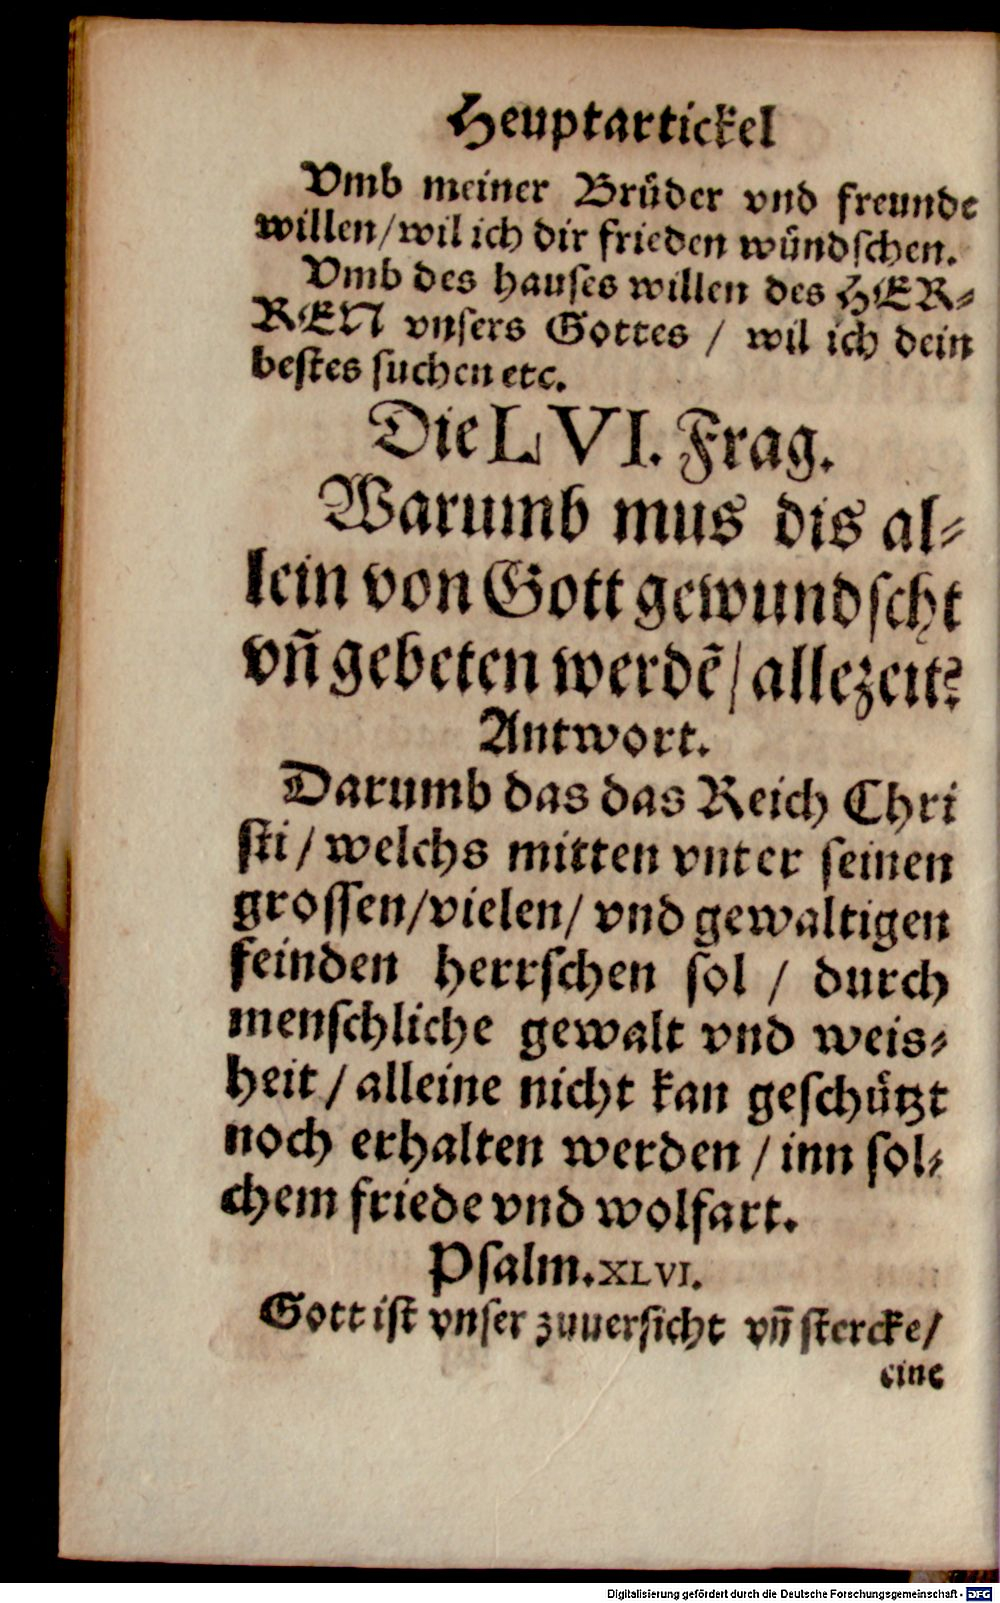 Heuptartickel
Vmb meiner Brüder vnd freunde
willen/wil ich dir frieden wündschen.
Vmb des hauses willen des HER-
REN vnsers Gottes / wil ich dein
bestes suchen etc.
Die LVI. Frag.
Warumb mus dis al-
lein von Gott gewundscht
vñ gebeten werdē/ allezeit?
Antwort.
Darumb das das Reich Chri
sti / welchs mitten vnter seinen
grossen/vielen/ vnd gewaltigen
feinden herrschen sol / durch
menschliche gewalt vnd weis-
heit / alleine nicht kan geschützt
noch erhalten werden / inn sol-
chem friede vnd wolfart.
Psalm.XLVI.
Gott ist vnser zuuersicht vñ stercke/
eine
Digitalisierung gefördert durch die Deutsche Forschungsgemeinschaft - DFG